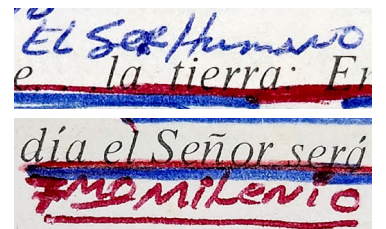 EL SER/Humano
e . . la tierra: En
día el Señor será
7MO MiLENiO